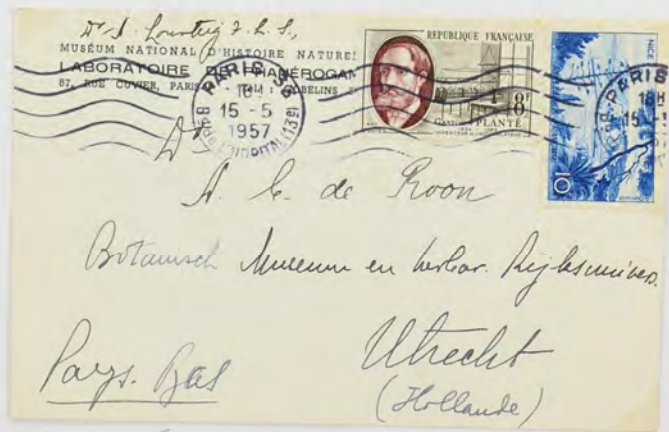 Dr A. Lourteig F.L.S.,
MUSÉUM NATIONAL D'HISTOIRE NATURE
LABORATOIRE DE PHANÉROGAM
57, RUE CUVIER, PARIS
GOBELINS
PARIS
18H
15-5
1957
BD DE L'HOPITAL (13e)
RÉPUBLIQUE FRANÇAISE
8F
GASTON PLANTÉ
NICE
10
PARIS
18H
15
Dr
A. C. de Roon
Botanisch Museum en herbar. Rijksuniver.
Utrecht
Pays-Bas
(Hollande)